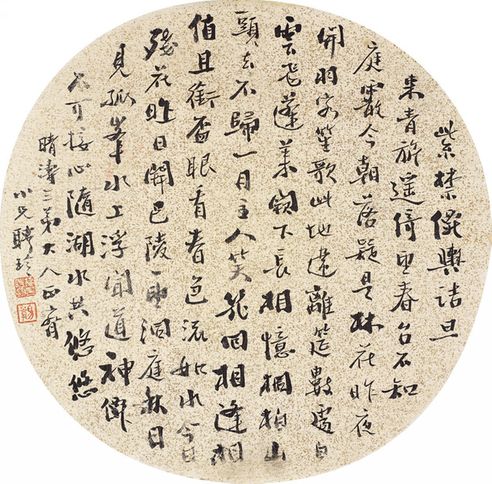 紫禁僊輿詰旦
来青旂遥倚望春台不知
庭霰今朝落疑是林花昨夜
開羽客笙歌此地違離筵數處白
雲飛蓬萊闕下長相憶桐柏山
頭去不歸一月主人笑幾回相逢相
值且銜盃眼看春色流如水今日
殘花昨日開巴陵一望洞庭秋日
見孤峯水上浮聞道神僊
不可接心隨湖水共悠悠
晴濤三弟大人正
小兄聘珍